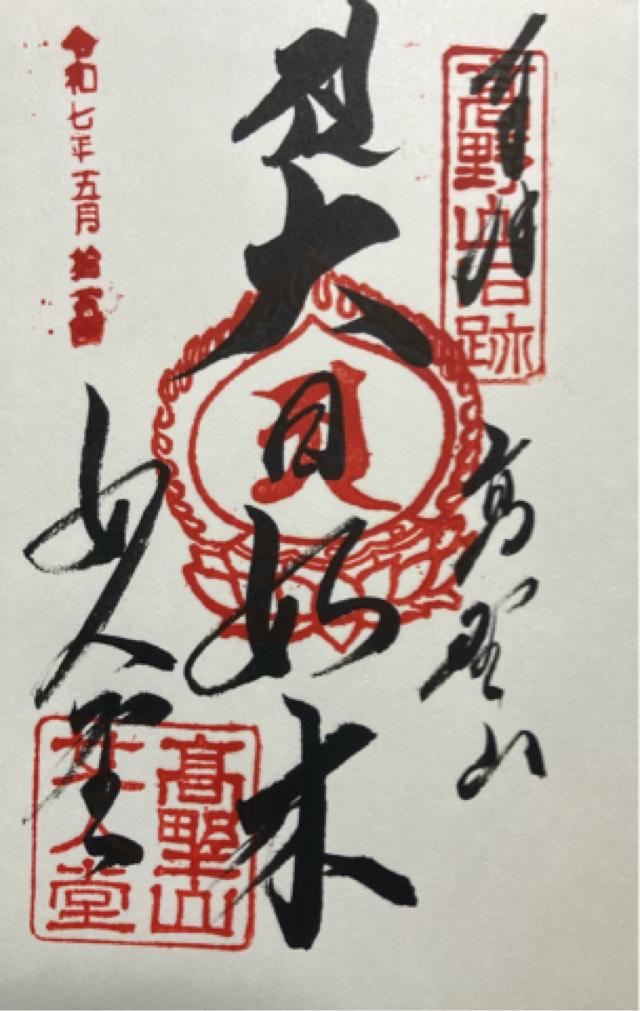 奉拝
高野山旧跡
高野山
大日如来
女人堂
髙野山
女人堂
令和七年五月拾五日